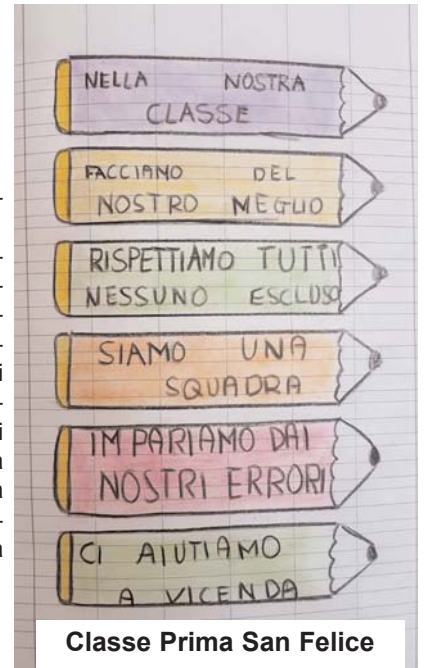 NELLA NOSTRA
CLASSE
FACCIAMO DEL
NOSTRO MEGLIO
RISPETTIAMO TUTTI
NESSUNO ESCLUSO
SIAMO UNA
SQUADRA
IMPARIAMO DAI
NOSTRI ERRORI
CI AIUTIAMO
A VICENDA
Classe Prima San Felice